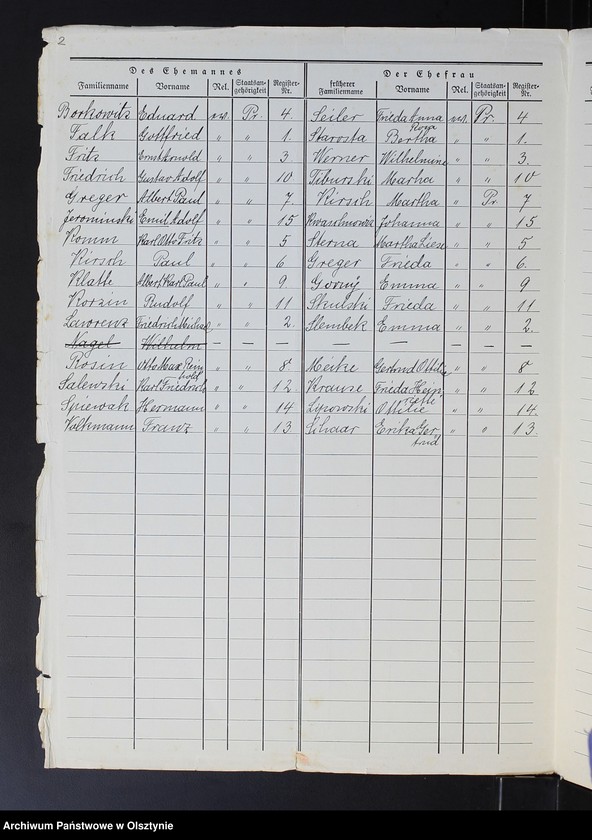 2
Des Ehemannes Der Ehefrau
Familienname Vorname Rel. Staatsan-gehörigkeit Register-Nr. früherer Familienname Vorname Rel. Staatsan-gehörigkeit Register-Nr.
Borkowitz Eduard ev. Pr. 4. Seiler Frieda Anna ev. Pr. 4
Falk Gottfried " " 1. Starosta Bertha " " 1.
Fritz Ernst Arnold " " 3 Werner Wilhelmine " " 3.
Friedrich Gustav Adolf " " 10 Tiburski Martha " " 10
Greger Albert Paul " " 7. Kirsch Martha " Pr. 7
Jerominski Emil Adolf " " 15 Johanna " " 15
Komm Karl Otto Fritz " " 5 Sterna Martha Liese " " 5
Kirsch Paul " " 6 Greger Frieda " " 6.
Klatte Albert Karl Paul " " 9 Gorny Emma " " 9
Korzin Rudolf " " 11 Skulski Frieda " " 11
Lawrenz Friedrich " " 2. Slembek Emma " " 2.
Nagel Wilhelm — — — — — — — —
Rosin Otto Max Rein-hold " " 8 Meike Gertrud Ottilie " " 8
Salewski Karl Friedrich " " 12 Krause Frieda Hen-riette " " 12
Spiewak Hermann " " 14 Lipowski Ottilie " " 14.
Volkmann Franz " " 13. Erika Ger-trud " " 13.
Archiwum Państwowe w Olsztynie